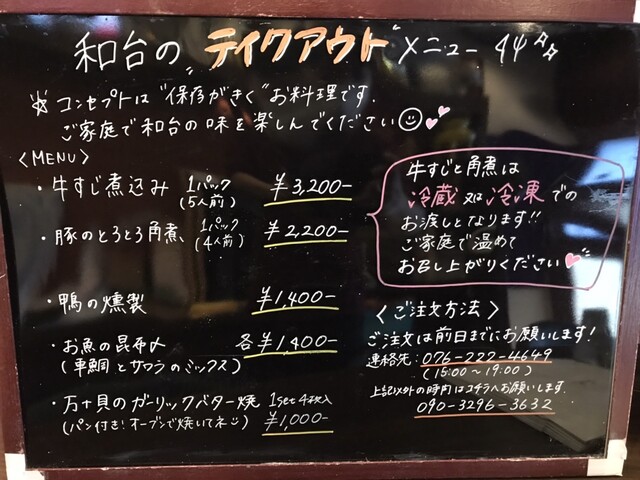 和台の "テイクアウト" メニュー
☆ コンセプトは "保存がきく" お料理です.
ご家庭で和台の味を楽しんでください☺
〈MENU〉
・牛すじ煮込み 1パック (5人前) ¥3,200-
・豚のとろとろ角煮 1パック (4人前) ¥2,200-
・鴨の燻製 ¥1,400-
・お魚の昆布〆 各¥1,400-
(車鯛とサワラのミックス)
・万十貝のガーリックバター焼 1set 4枚入
(パン付き!オーブンで焼いてネ) ¥1,000-
牛すじと角煮は
冷蔵又は冷凍での
お渡しとなります!!
ご家庭で温めて
お召し上がりください♥
〈ご注文方法〉
ご注文は前日までにお願いします!
連絡先:076-222-4649
(15:00~19:00)
上記以外の時間はコチラへお願いします.
090-3296-3632